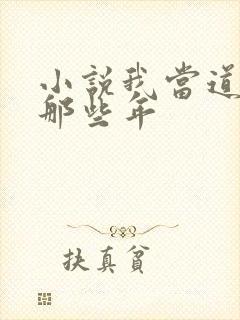 小説我當道
那些年
扶真貧